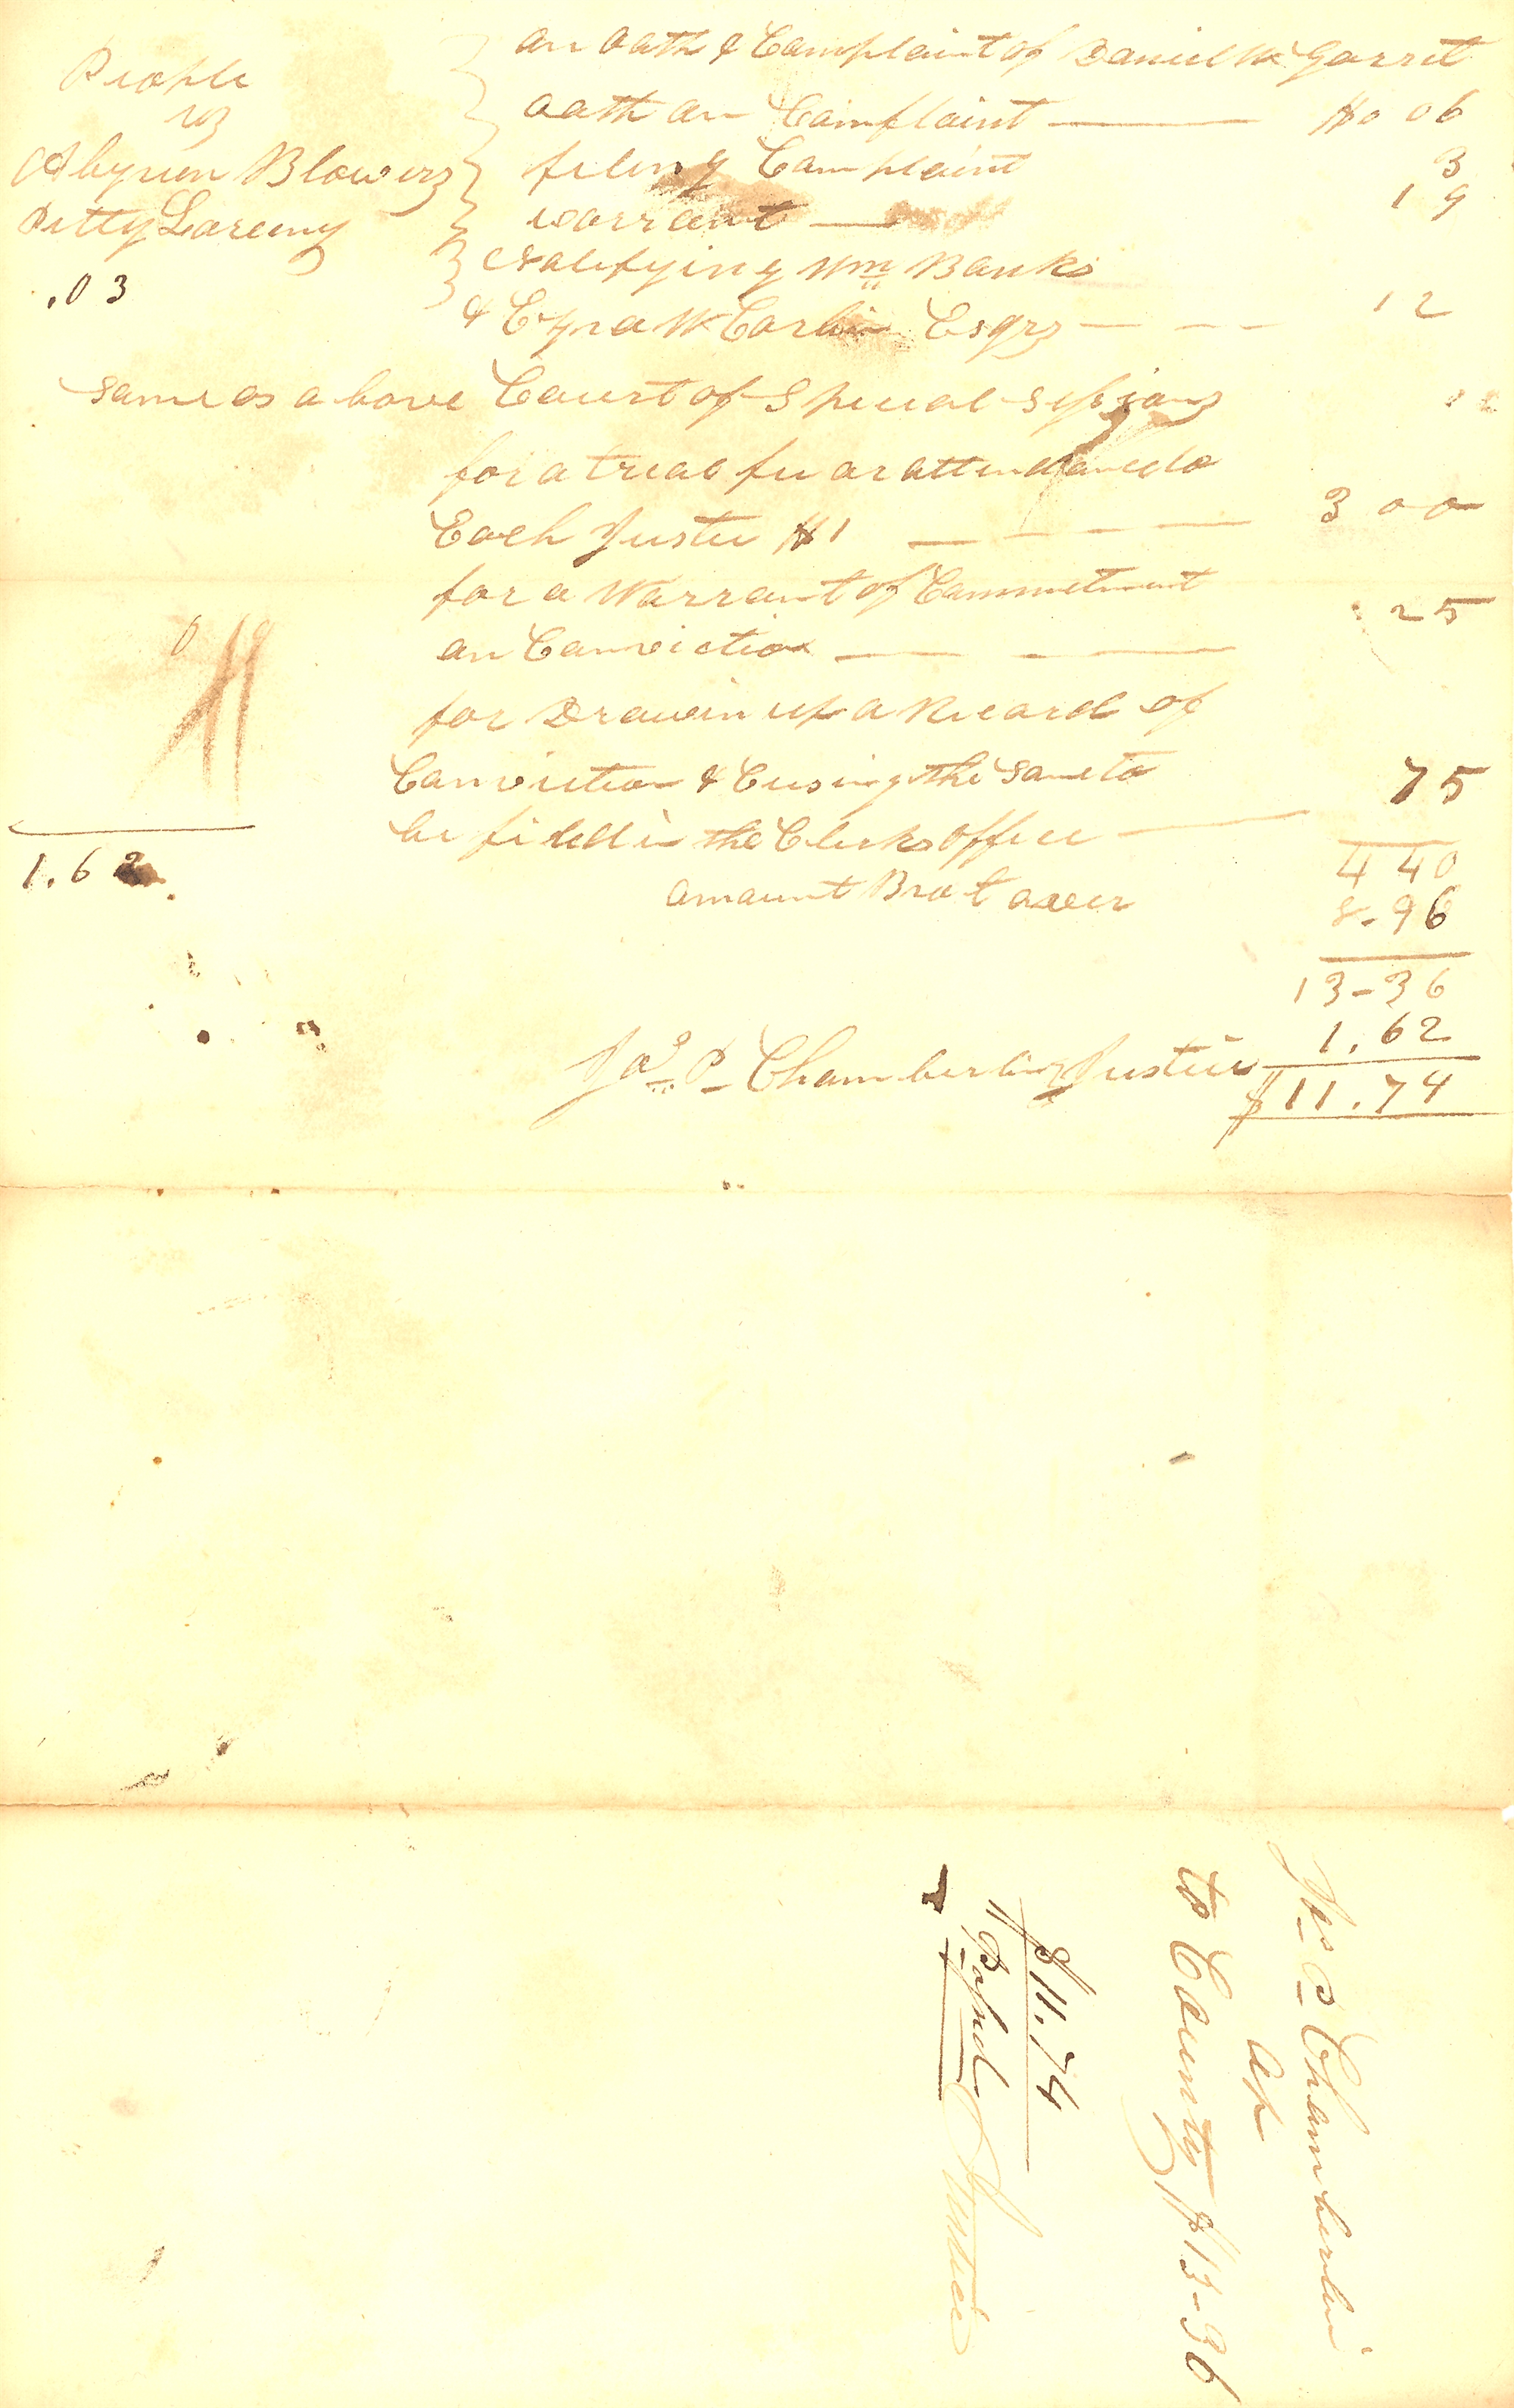 an oath & Complaint of Daniel Mc Garret
People
vs
Abyrum Blowers
Pitty Larceny
.03
oath an Complaint $0 06
filing Complaint 3
warrant 19
Notifying Wm Banks
& Ezra W Corbin Esqrs 12
Same as above Court of Special Sessions
for a trial fee or attendance to
Each Justice $1 3 00
for a Warrant of Commetment
an Conviction .25
for Drawin up a Record of
Conviction & Cusing the Same to
be filed in the Clerks office 75
1.62
4 40
amount Brot over 8-96
13-36
1.62
Jas P Chamberlin Justice $11.74
Jas P Chamberlin
to County $13-36
$11.74
Justice